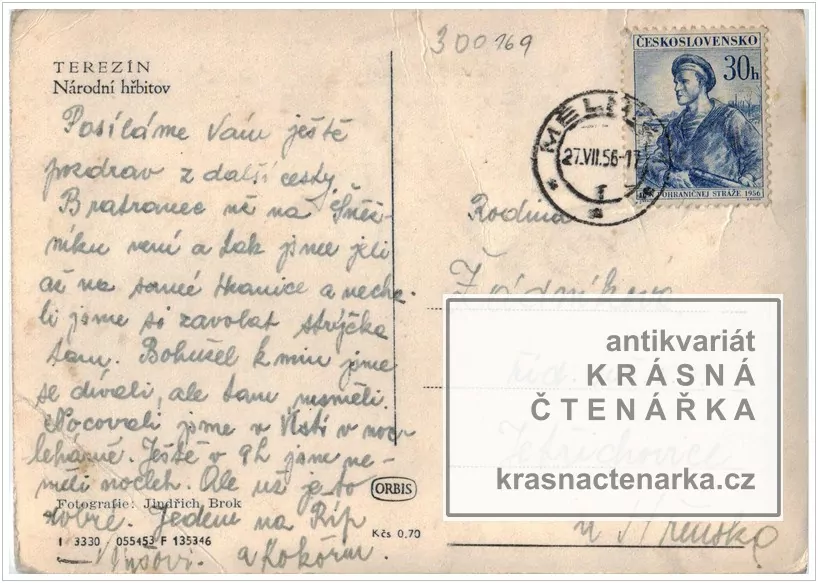 300169
TEREZÍN
Národní hřbitov
ČESKOSLOVENSKO
30h
POHRANIČNEJ STRÁŽE 1956
27.VII.56-17
Posíláme Vám ještě
pozdrav z další cesty
Bratranec už na Sněž-
níku není a tak jsme jeli
až na samé Hranice a necha-
li jsme si zavolat strýčka
tam. Bohušel k nim jsme
se dívali, ale tam nesměli.
Nocovali jsme v Ústí v noc-
lehárně. Ještě v 9h jsme ne-
měli nocleh. Ale už je to
dobré. Jedem na Říp
a Kokořín.
Rodina
Zádníkova
Jetřichovice
u Hřenska
antikvariát
KRÁSNÁ
ČTENÁŘKA
krasnactenarka.cz
ORBIS
Fotografie: Jindřich Brok
Kčs 0,70
1 3330 - 055453 F 135346